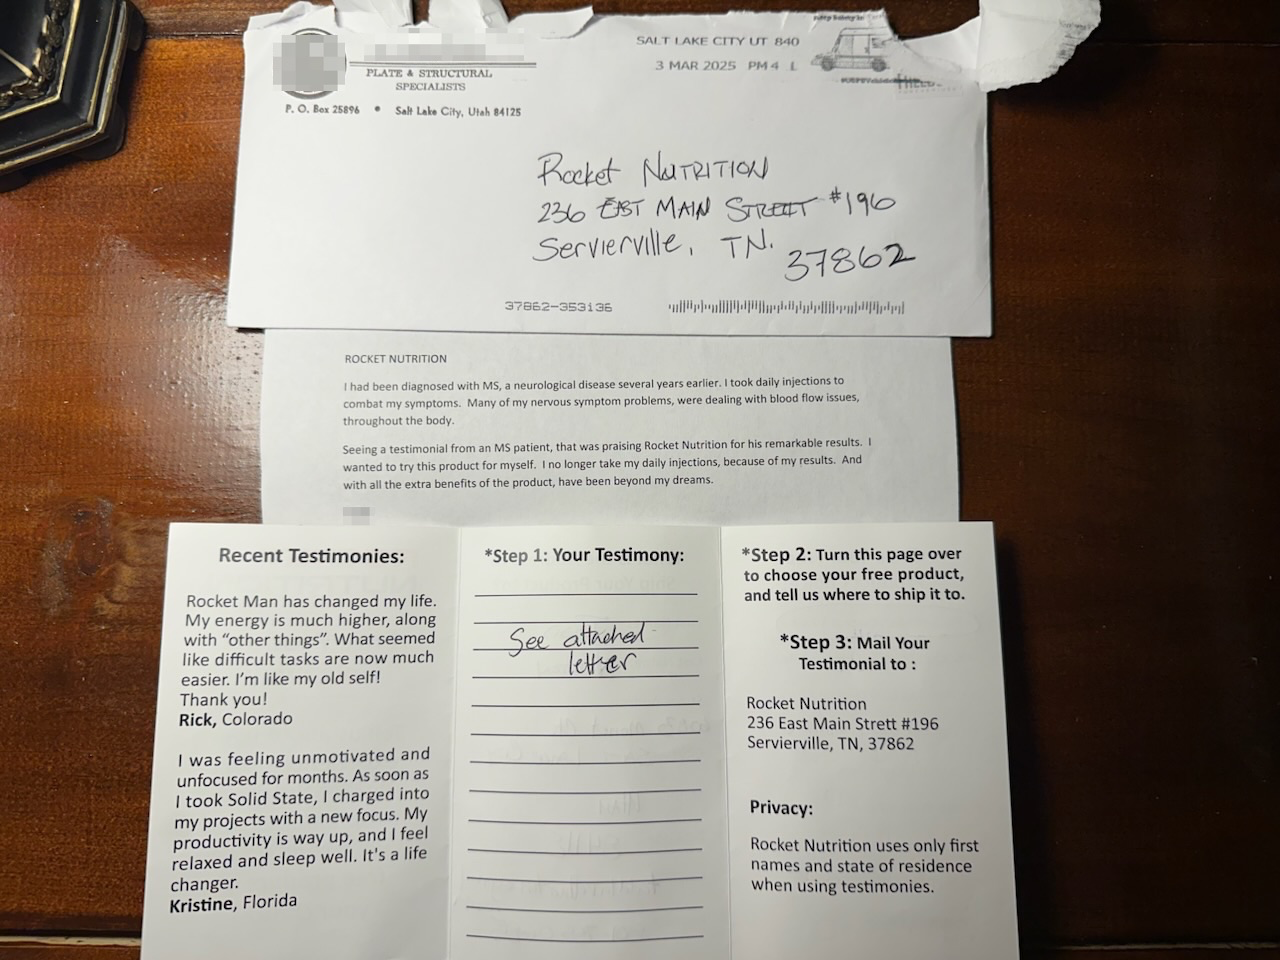 PLATE & STRUCTURAL
SPECIALISTS
P. O. Box 25896 • Salt Lake City, Utah 84125
SALT LAKE CITY UT 840
3 MAR 2025 PM 4 L
Rocket NUTRITION
236 EAST MAIN STREET #196
Servierville, TN.
37862
37862-353136
ROCKET NUTRITION
I had been diagnosed with MS, a neurological disease several years earlier. I took daily injections to
combat my symptoms. Many of my nervous symptom problems, were dealing with blood flow issues,
throughout the body.
Seeing a testimonial from an MS patient, that was praising Rocket Nutrition for his remarkable results. I
wanted to try this product for myself. I no longer take my daily injections, because of my results. And
with all the extra benefits of the product, have been beyond my dreams.
Recent Testimonies:
Rocket Man has changed my life.
My energy is much higher, along
with “other things”. What seemed
like difficult tasks are now much
easier. I’m like my old self!
Thank you!
Rick, Colorado
I was feeling unmotivated and
unfocused for months. As soon as
I took Solid State, I charged into
my projects with a new focus. My
productivity is way up, and I feel
relaxed and sleep well. It's a life
changer.
Kristine, Florida
*Step 1: Your Testimony:
See attached
letter
*Step 2: Turn this page over
to choose your free product,
and tell us where to ship it to.
*Step 3: Mail Your
Testimonial to :
Rocket Nutrition
236 East Main Strett #196
Servierville, TN, 37862
Privacy:
Rocket Nutrition uses only first
names and state of residence
when using testimonies.